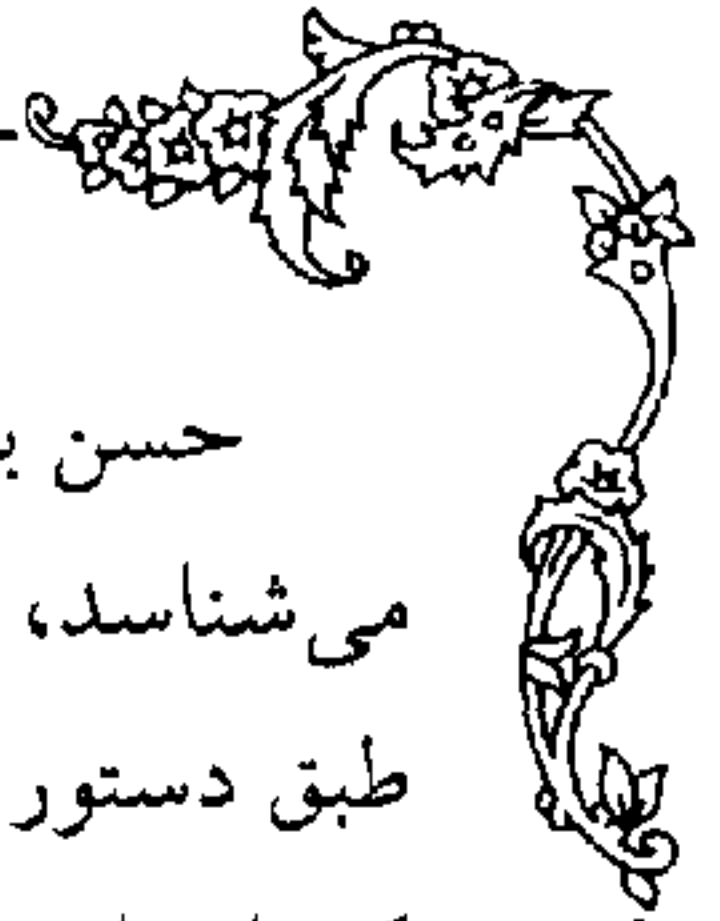 حسن
می‌شناسد،
طبق دستور